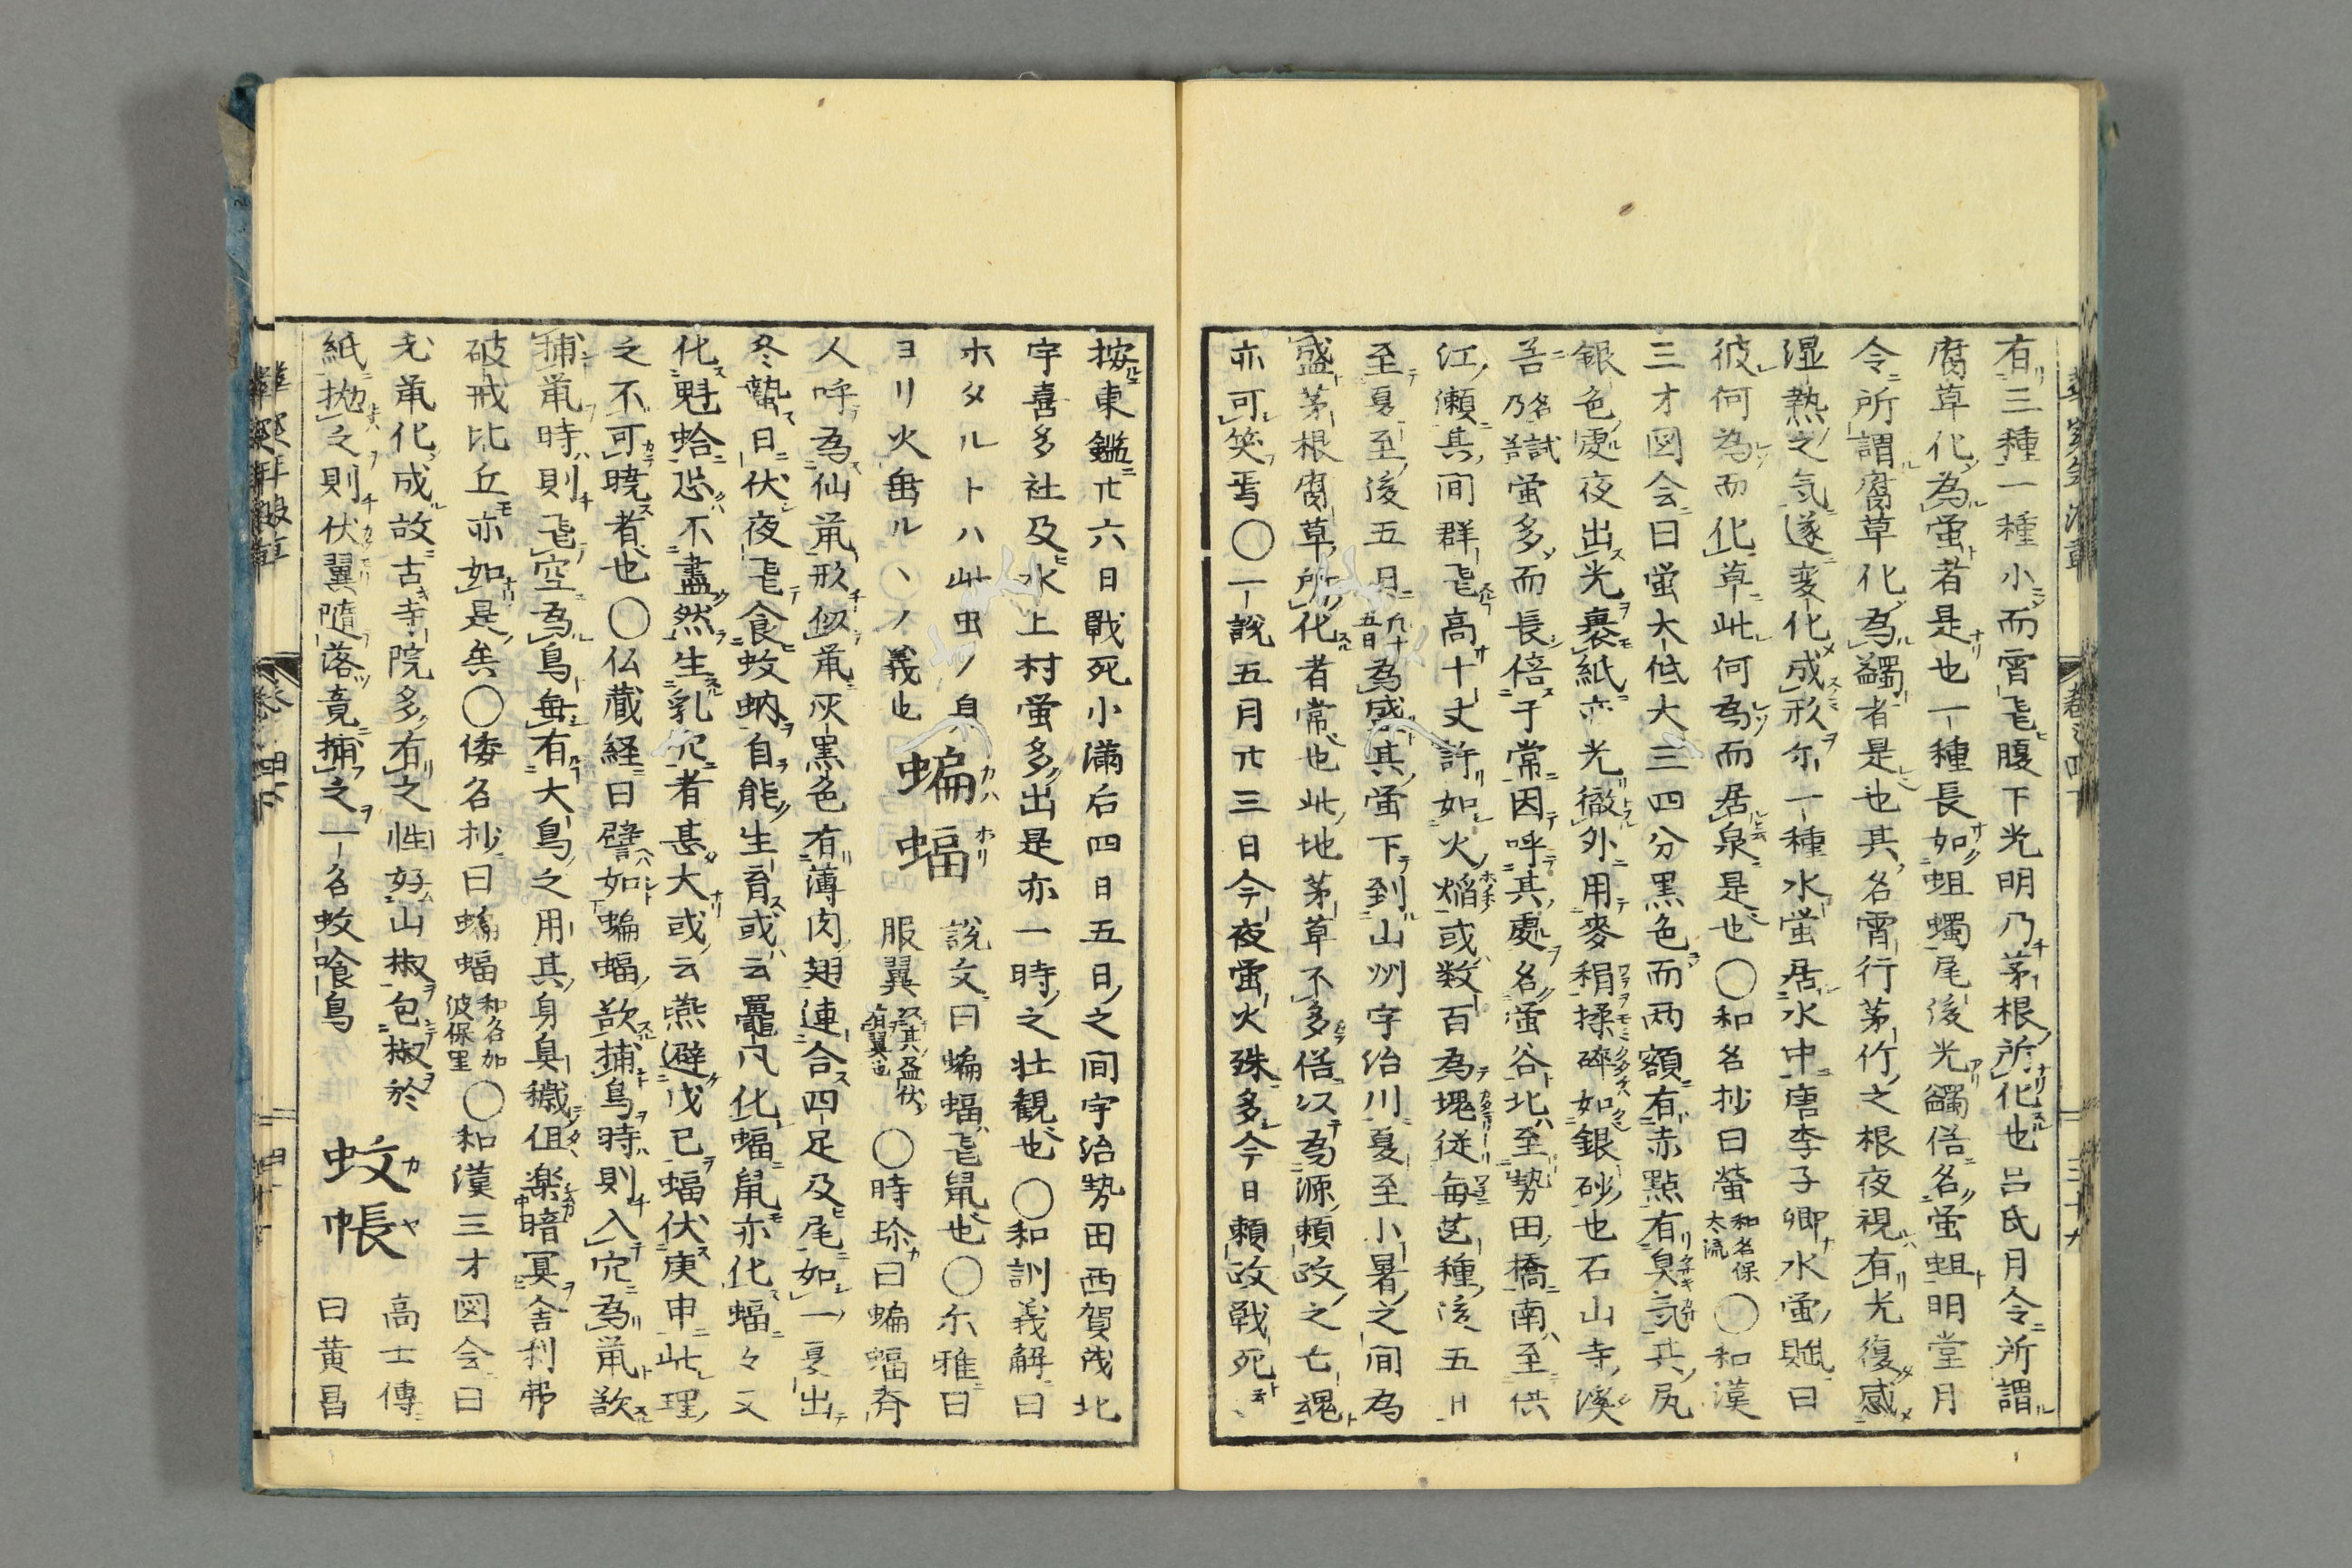 有三種一種小而宵飛腹下光明乃茅根所化也呂氏月令所謂
腐草化為蛍者是也一種長如蛆蠋尾後光蠲俗名蛍蛆明堂月
令所謂腐草化為蠲者是也其名宵行茅竹之根夜視有光復感
湿熱之気遂変化成形尓一種水蛍居水中唐李子卿水蛍賦曰
彼何為而化草此何為而居泉是也〇和名抄曰螢和名保太流〇和漢
三才図会曰蛍大低大三四分黒色而両額有赤點有臭気其尻
銀色処夜出光裹紙亦光徹外用麥稍揉碎如銀砂也石山寺溪
名試乃蛍多而長倍于常因呼其處名蛍谷北至勢田橋南至供
江瀬其間群飛高十丈許如火焔或数百為塊従毎芒種後五日
至夏至後五日凡十五日為盛其蛍下到山州宇治川夏至小暑之間為
盛茅根腐草所化者常也此地茅草不多俗以為源頼政之亡魂
亦可笑焉〇一說五月廿三日今夜蛍火殊多今日頼政戦死
按東鑑廿六日戰死小滿后四日五日之间宇治勢田西賀茂北
宇喜多社及水上村蛍多出是亦一時之壮観也〇和訓義解曰
ホタルトハ此虫ノ身
ヨリ火垂ル丶ノ義也
蝙蝠
カハホリ
説文曰蝙蝠飛鼠也〇尓雅曰
服翼以其晝伏有翼也〇時珍曰蝙蝠齊
人呼為仙鼠形似鼠灰黒色有薄肉翅連合四足及尾如一夏出
冬蟄日伏夜飛食蚊蚋自能生育或云鼉凡化蝠鼠亦化蝠々又
化魁蛤恐不盡然生乳穴者甚大或云燕避戊已蝠伏庚申此理
之不可暁者也〇仏蔵経曰譬如蝙蝠欲捕鳥時則入穴為鼠欲
捕鼠時則飛空為鳥無有大鳥之用其身臭穢但楽暗冥舎利弗
破戒比丘亦如是矣〇倭名抄曰蝙蝠和名加波保里〇和漢三才図会曰
老鼠化成故古寺院多有之性好山椒包椒於
紙拋之則伏翼隨落竟捕之一名蚊喰鳥
蚊帳
カヤ
高士傳
曰黄昌